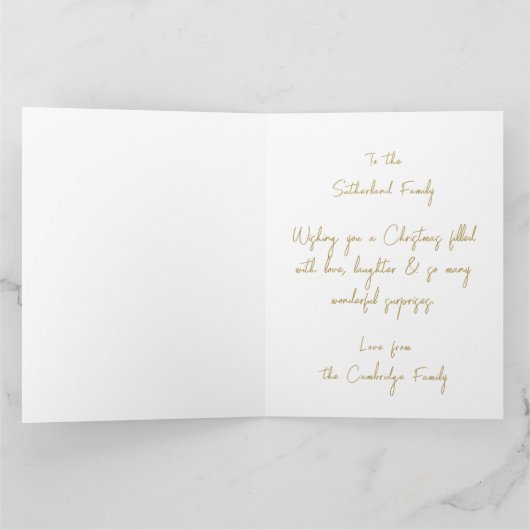 To the
Sutherland Family
Wishing you a Christmas filled
with love, laughter & so many
wonderful surprises.
Love from
the Cambridge Family